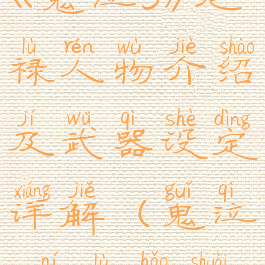 《鬼泣5》尼
lù rén wù jiè shào
禄人物介绍
jí wǔ qì shè dìng
及武器设定
xiáng jiě guǐ qì
详解（鬼泣
ní lù hǎo shuài